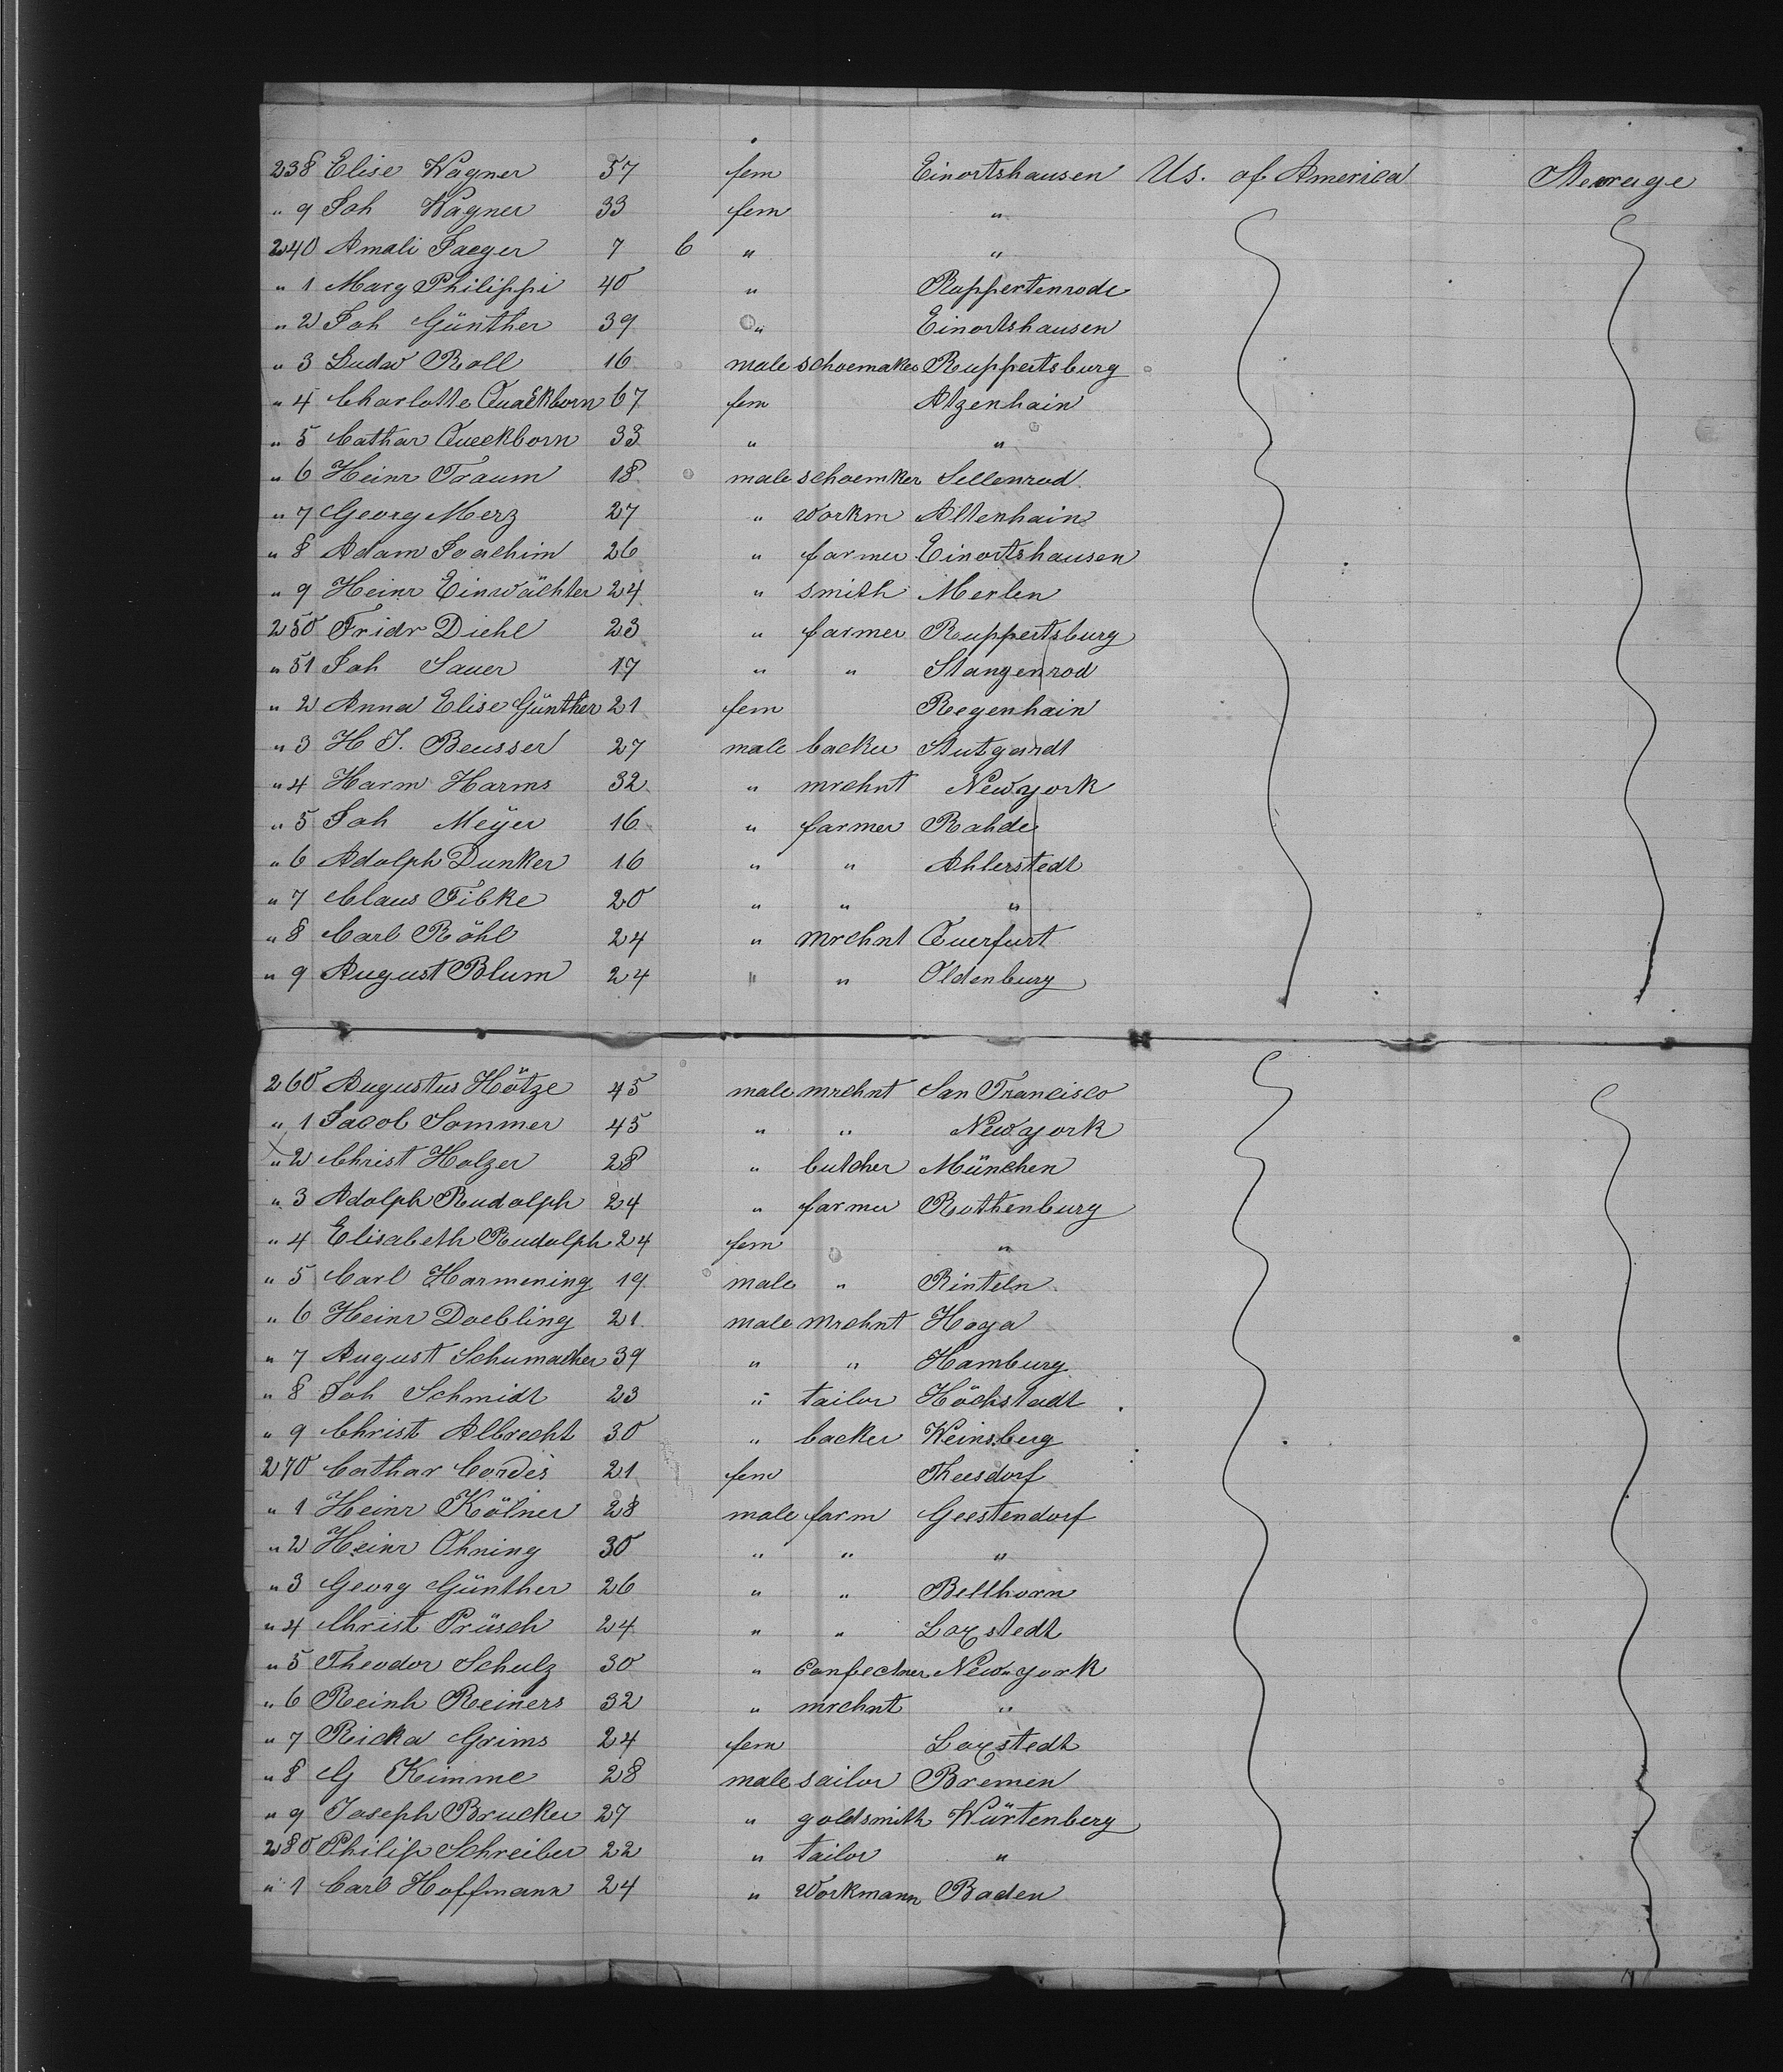 238 Elise Wagner 57 fem Einortshausen Us. of America Steerage
" 9 Joh Wagner 33 fem "
240 Amali Jaeger 7 6 " "
" 1 Marg Philippi 40 " Ruppertenrode
" 2 Joh Günther 39 " Einortshausen
" 3 Ludw Roll 16 male schoemaker Ruppertsburg
" 4 Charlotte Queckborn 67 fem Atzenhain
" 5 Cathar Queckborn 33 " "
" 6 Heinr Traum 18 male schoemker Sellenrod
" 7 Georg Merz 27 " workm Altenhain
" 8 Adam Joachim 26 " farmer Einortshausen
" 9 Heinr Einwächter 24 " smith Merlen
250 Fridr Diehl 23 " farmer Ruppertsburg
" 51 Joh Sauer 17 " " Stangenrod
" 2 Anna Elise Günther 21 fem Regenhain
" 3 H J. Beusser 27 male backer Stutgardt
" 4 Harm Harms 32 " mrchnt Newyork
" 5 Joh Meÿer 16 " farmer Rahde
" 6 Adolph Dunker 16 " " Ahlerstedt
" 7 Claus Tibke 20 " " "
" 8 Carl Röhl 24 " mrchnt Querfurt
" 9 August Blum 24 " " Oldenburg
260 Augustus Hötze 45 male mrchnt San Francisco
" 1 Jacob Sommer 45 " " Newyork
" 2 Christ Holzer 28 " butcher München
" 3 Adolph Rudolph 24 " farmer Rothenburg
" 4 Elisabeth Rudolph 24 fem "
" 5 Carl Harmening 19 male " Rinteln
" 6 Heinr Doebling 21 male mrchnt Hoya
" 7 August Schumacher 39 " " Hamburg
" 8 Joh Schmidt 23 " tailor Höchstadt
" 9 Christ Albrecht 30 " backer Weinsberg
270 Cathar Cordes 21 fem Theesdorf
" 1 Heinr Kölner 28 male farm Geestendorf
" 2 Heinr Ohning 30 " " "
" 3 Georg Günther 26 " " Bellhorn
" 4 Christ Prüsch 24 " " Loxstedt
" 5 Theodor Schulz 30 " Confectner New-york
" 6 Reinh Reiners 32 " mrchnt "
" 7 Ricka Grims 24 fem Loxstedt
" 8 G Kimme 28 male sailor Bremen
" 9 Joseph Brucker 27 " goldsmith Würtenberg
280 Philip Schreiber 22 " tailor "
" 1 Carl Hoffmann 24 " Workmann Baden